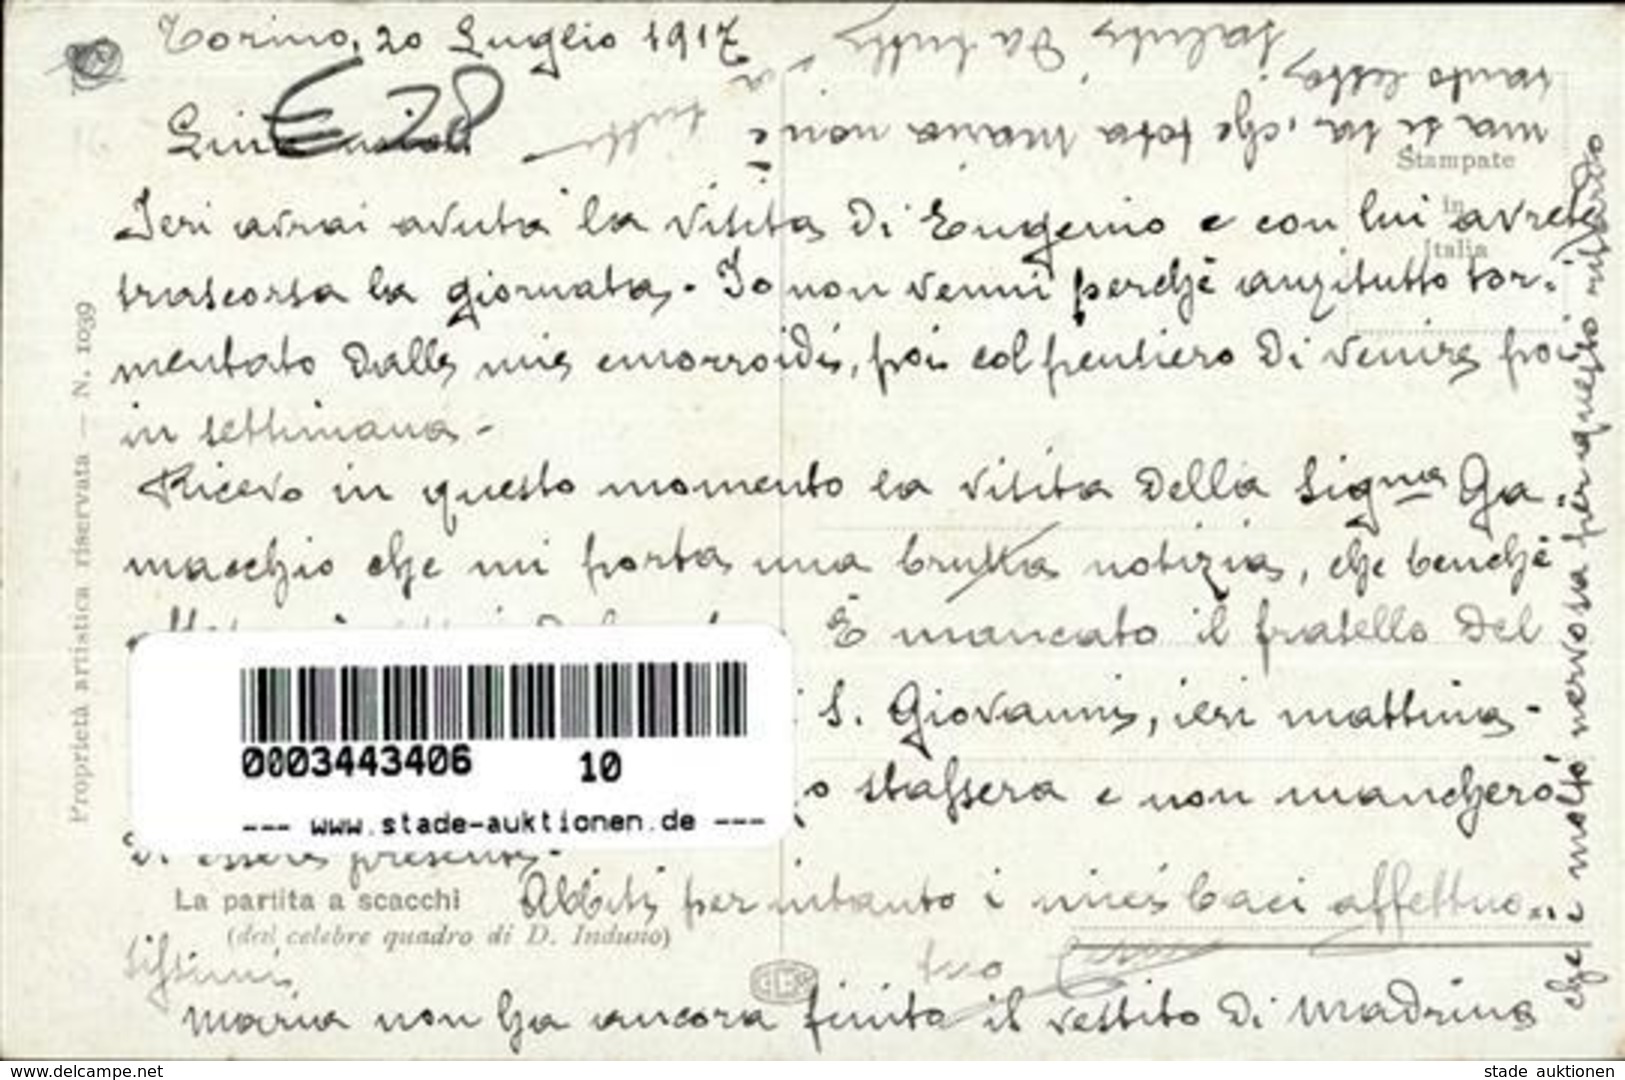 Torino, 20 Luglio 1917
€ 28
Ieri avrai avuta la visita di Eugenio e con lui avrete
trascorsa la giornata. Io non venni perchè anzitutto tor-
mentato dalle mie emorroidi, poi col pensiero di venire poi
in settimana -
Ricevo in questo momento la visita della Sigⁿᵃ Ga-
macchio che mi porta una brutta notizia, che benchè
È mancato il fratello del
S. Giovanni, ieri mattina -
stassera e non mancherò
di essere presente -
Abbiti per intanto i miei baci affettuo-
sissimi
tuo
Maria non ha ancora finito il vestito di Madrina
che è molto nervosa per questo ritardo
ma si sa, che tota Maria non è
tanto lesta,
saluti da tutti
a tutti
Stampate
in
Italia
Proprietà artistica riservata — N. 1039
La partita a scacchi
(dal celebre quadro di D. Induno)
0003443406 10
--- www.stade-auktionen.de ---
www.delcampe.net
stade auktionen